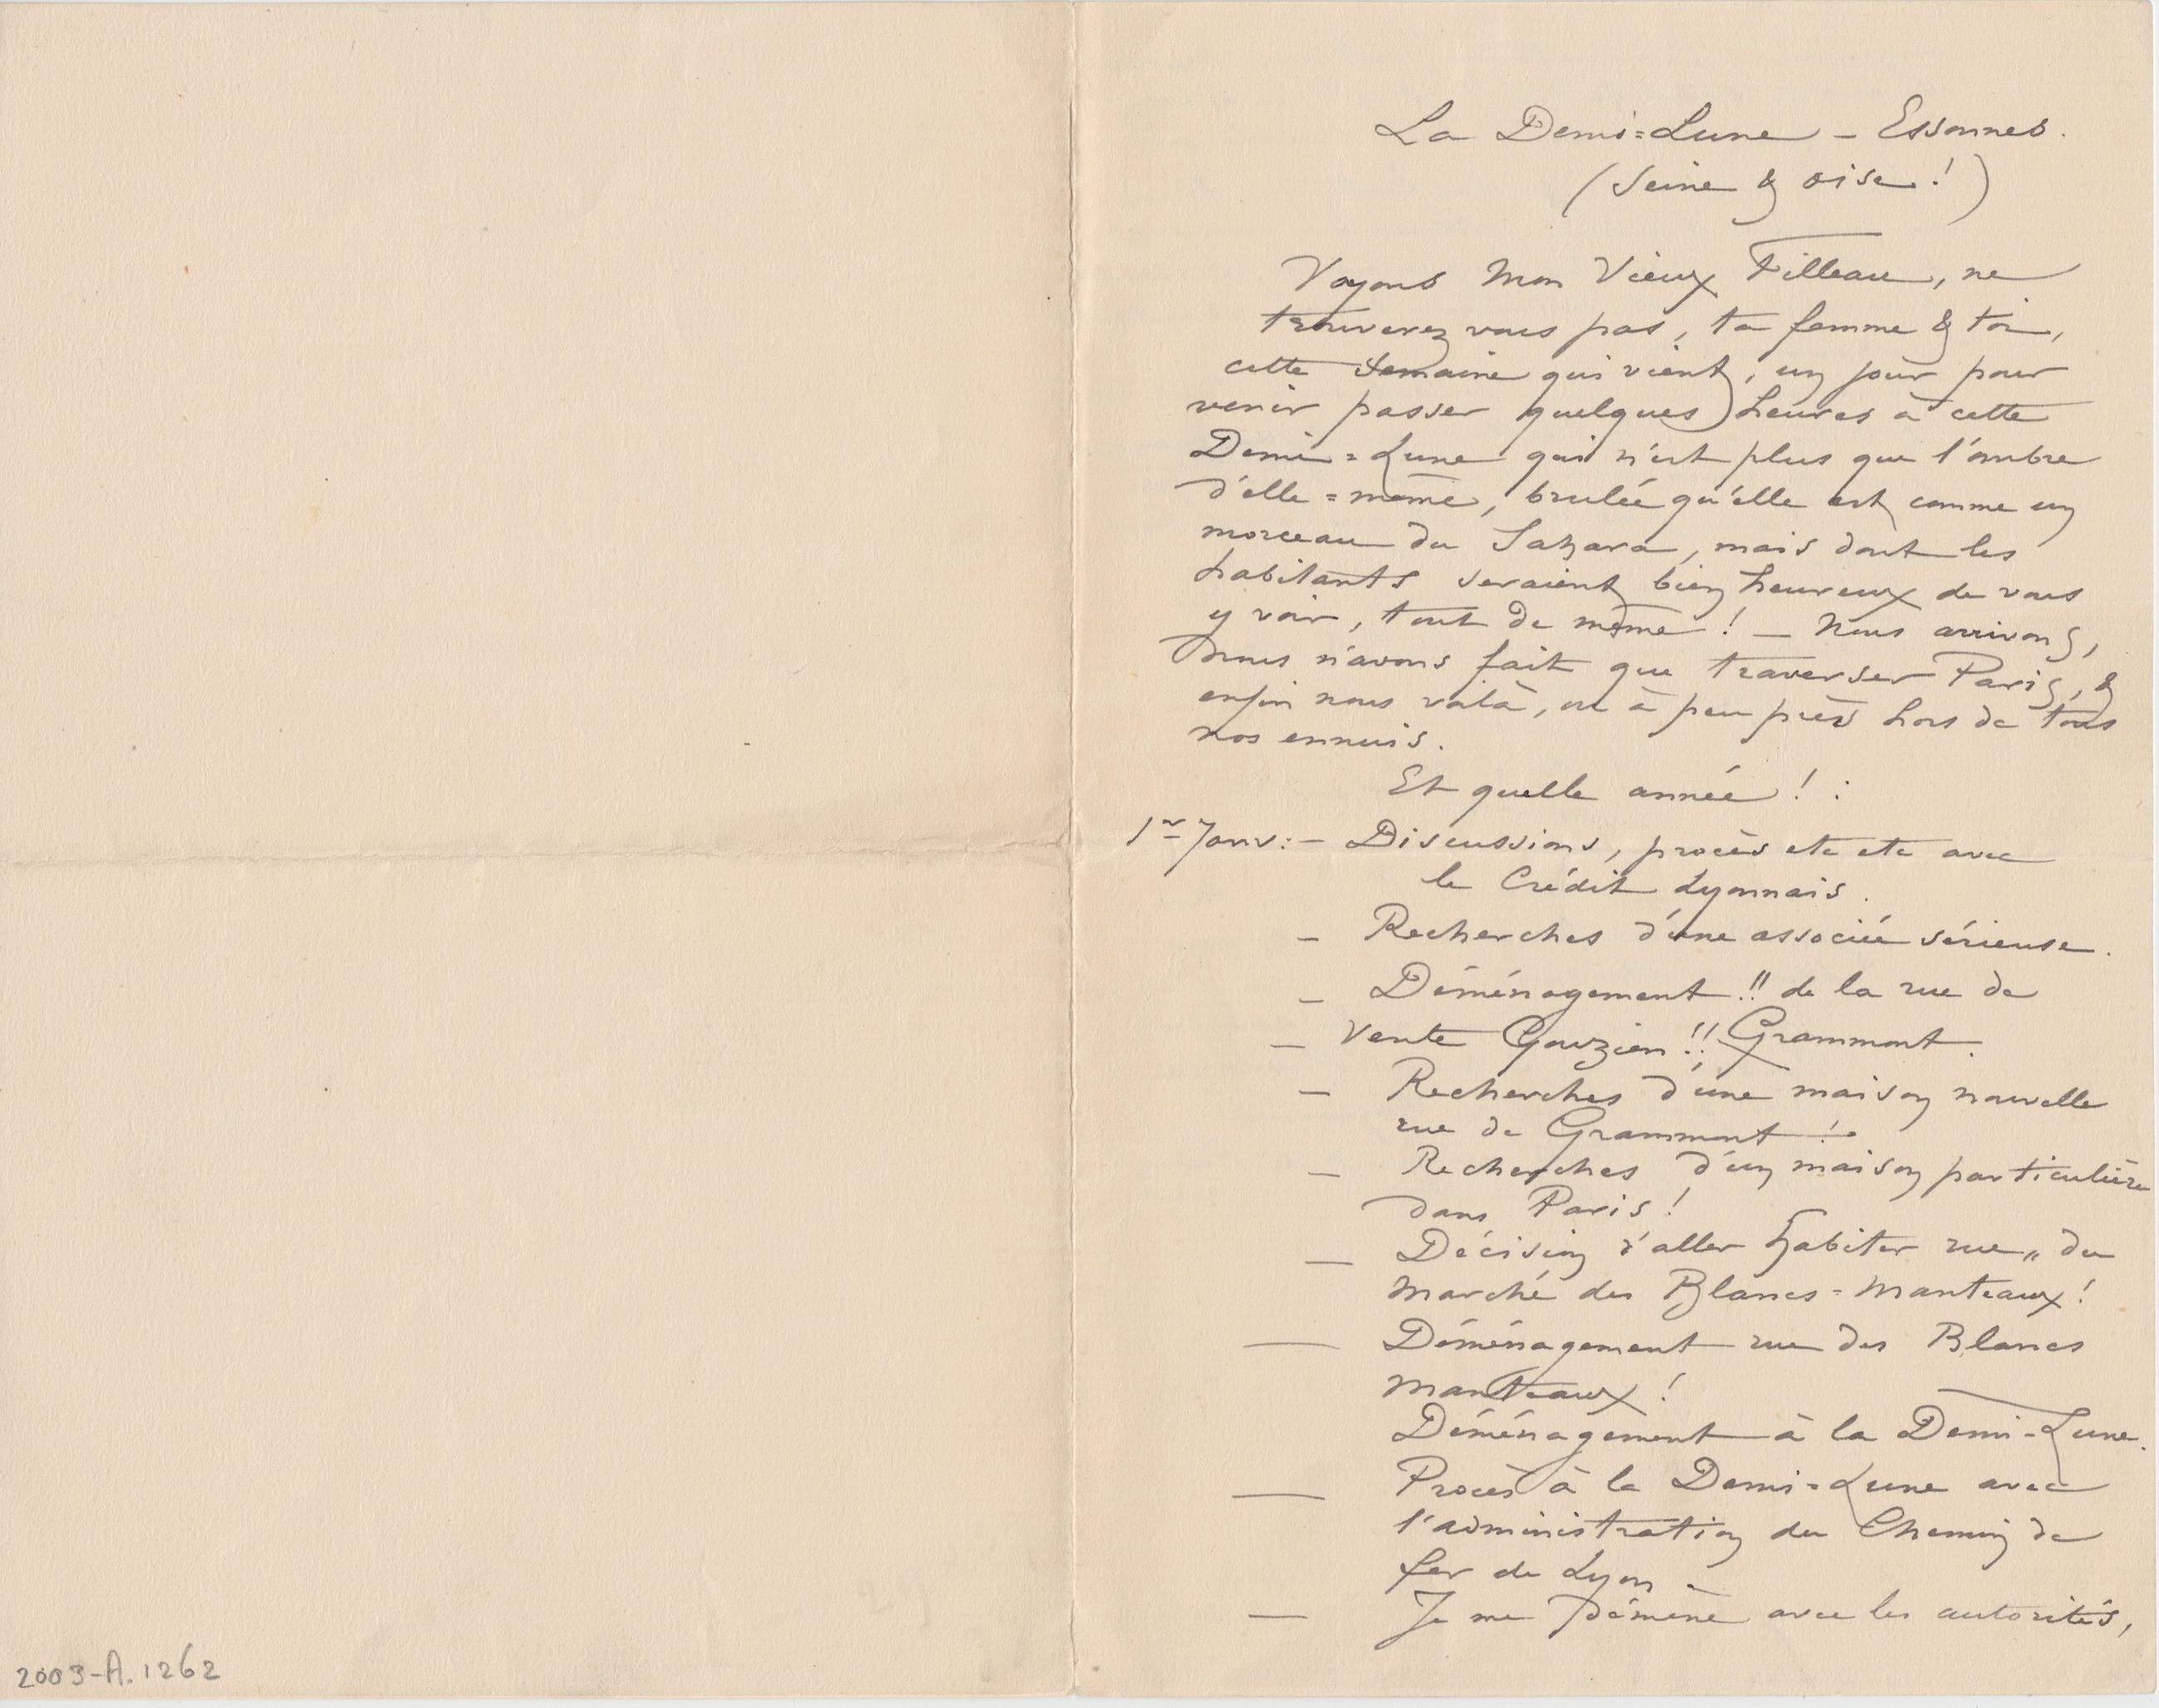 La Demi=Lune – Essonnes.
(Seine & Oise !)
Voyons Mon Vieux Filleau, ne
trouverez vous pas, ta femme & toi,
cette semaine qui vient, un jour pour
venir passer quelques heures à cette
Demi=Lune qui n'est plus que l'ombre
d'elle=même, brulée qu'elle est comme un
morceau du Sahara, mais dont les
habitants seraient bien heureux de vous
y voir, tout de même ! — Nous arrivons,
nous n'avons fait que traverser Paris, &
enfin nous voilà, ou à peu près hors de tous
nos ennuis.
Et quelle année ! :
1er Janv: – Discussions, procès etc etc avec
le Crédit Lyonnais.
– Recherches d'une associée sérieuse.
– Déménagement !! de la rue de
Grammont.
– Vente Gouzien !!
– Recherches d'une maison nouvelle
rue de Grammont !
– Recherches d'un maison particulière
dans Paris !
– Décision d'aller habiter rue „ du
Marché des Blancs=Manteaux !
— Déménagement rue des Blancs
Manteaux !
Déménagement à la Demi-Lune.
— Procès à la Demi=Lune avec
l'administration du Chemin de
fer de Lyon –
— Je me démène avec les autorités,
2003-A.1262